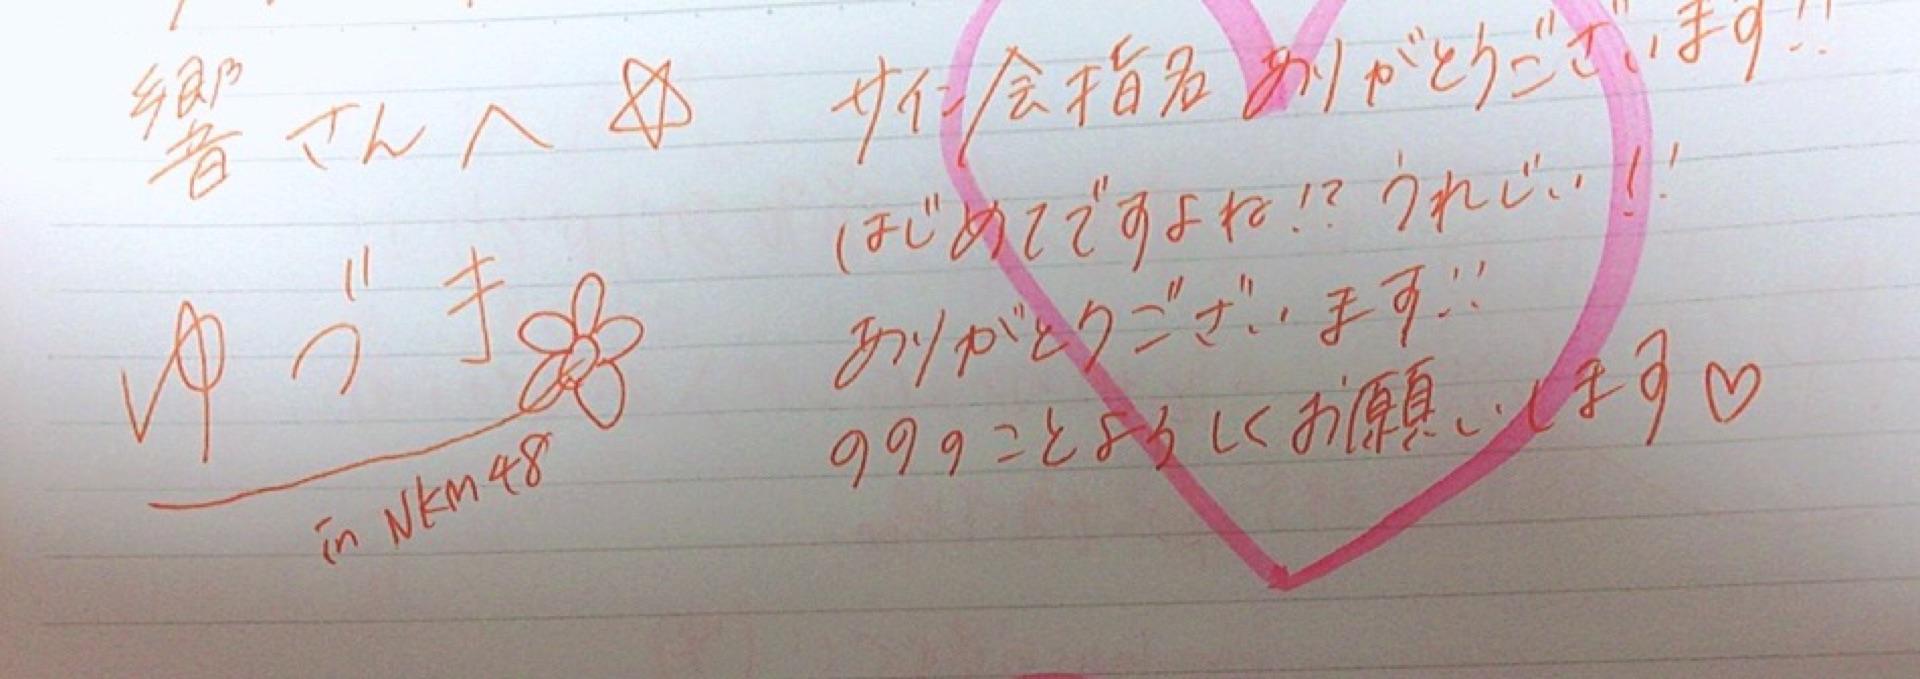 響さんへ☆
ゆづき
in NKM48
サイン会指名ありがとうございます!!
はじめてですよね!? うれじい!!
ありがとうございます!!
ののののことよろしくお願いします♡